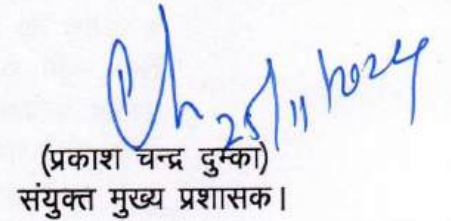 25/11/2024
(प्रकाश चन्द्र दुम्का)
संयुक्त मुख्य प्रशासक।